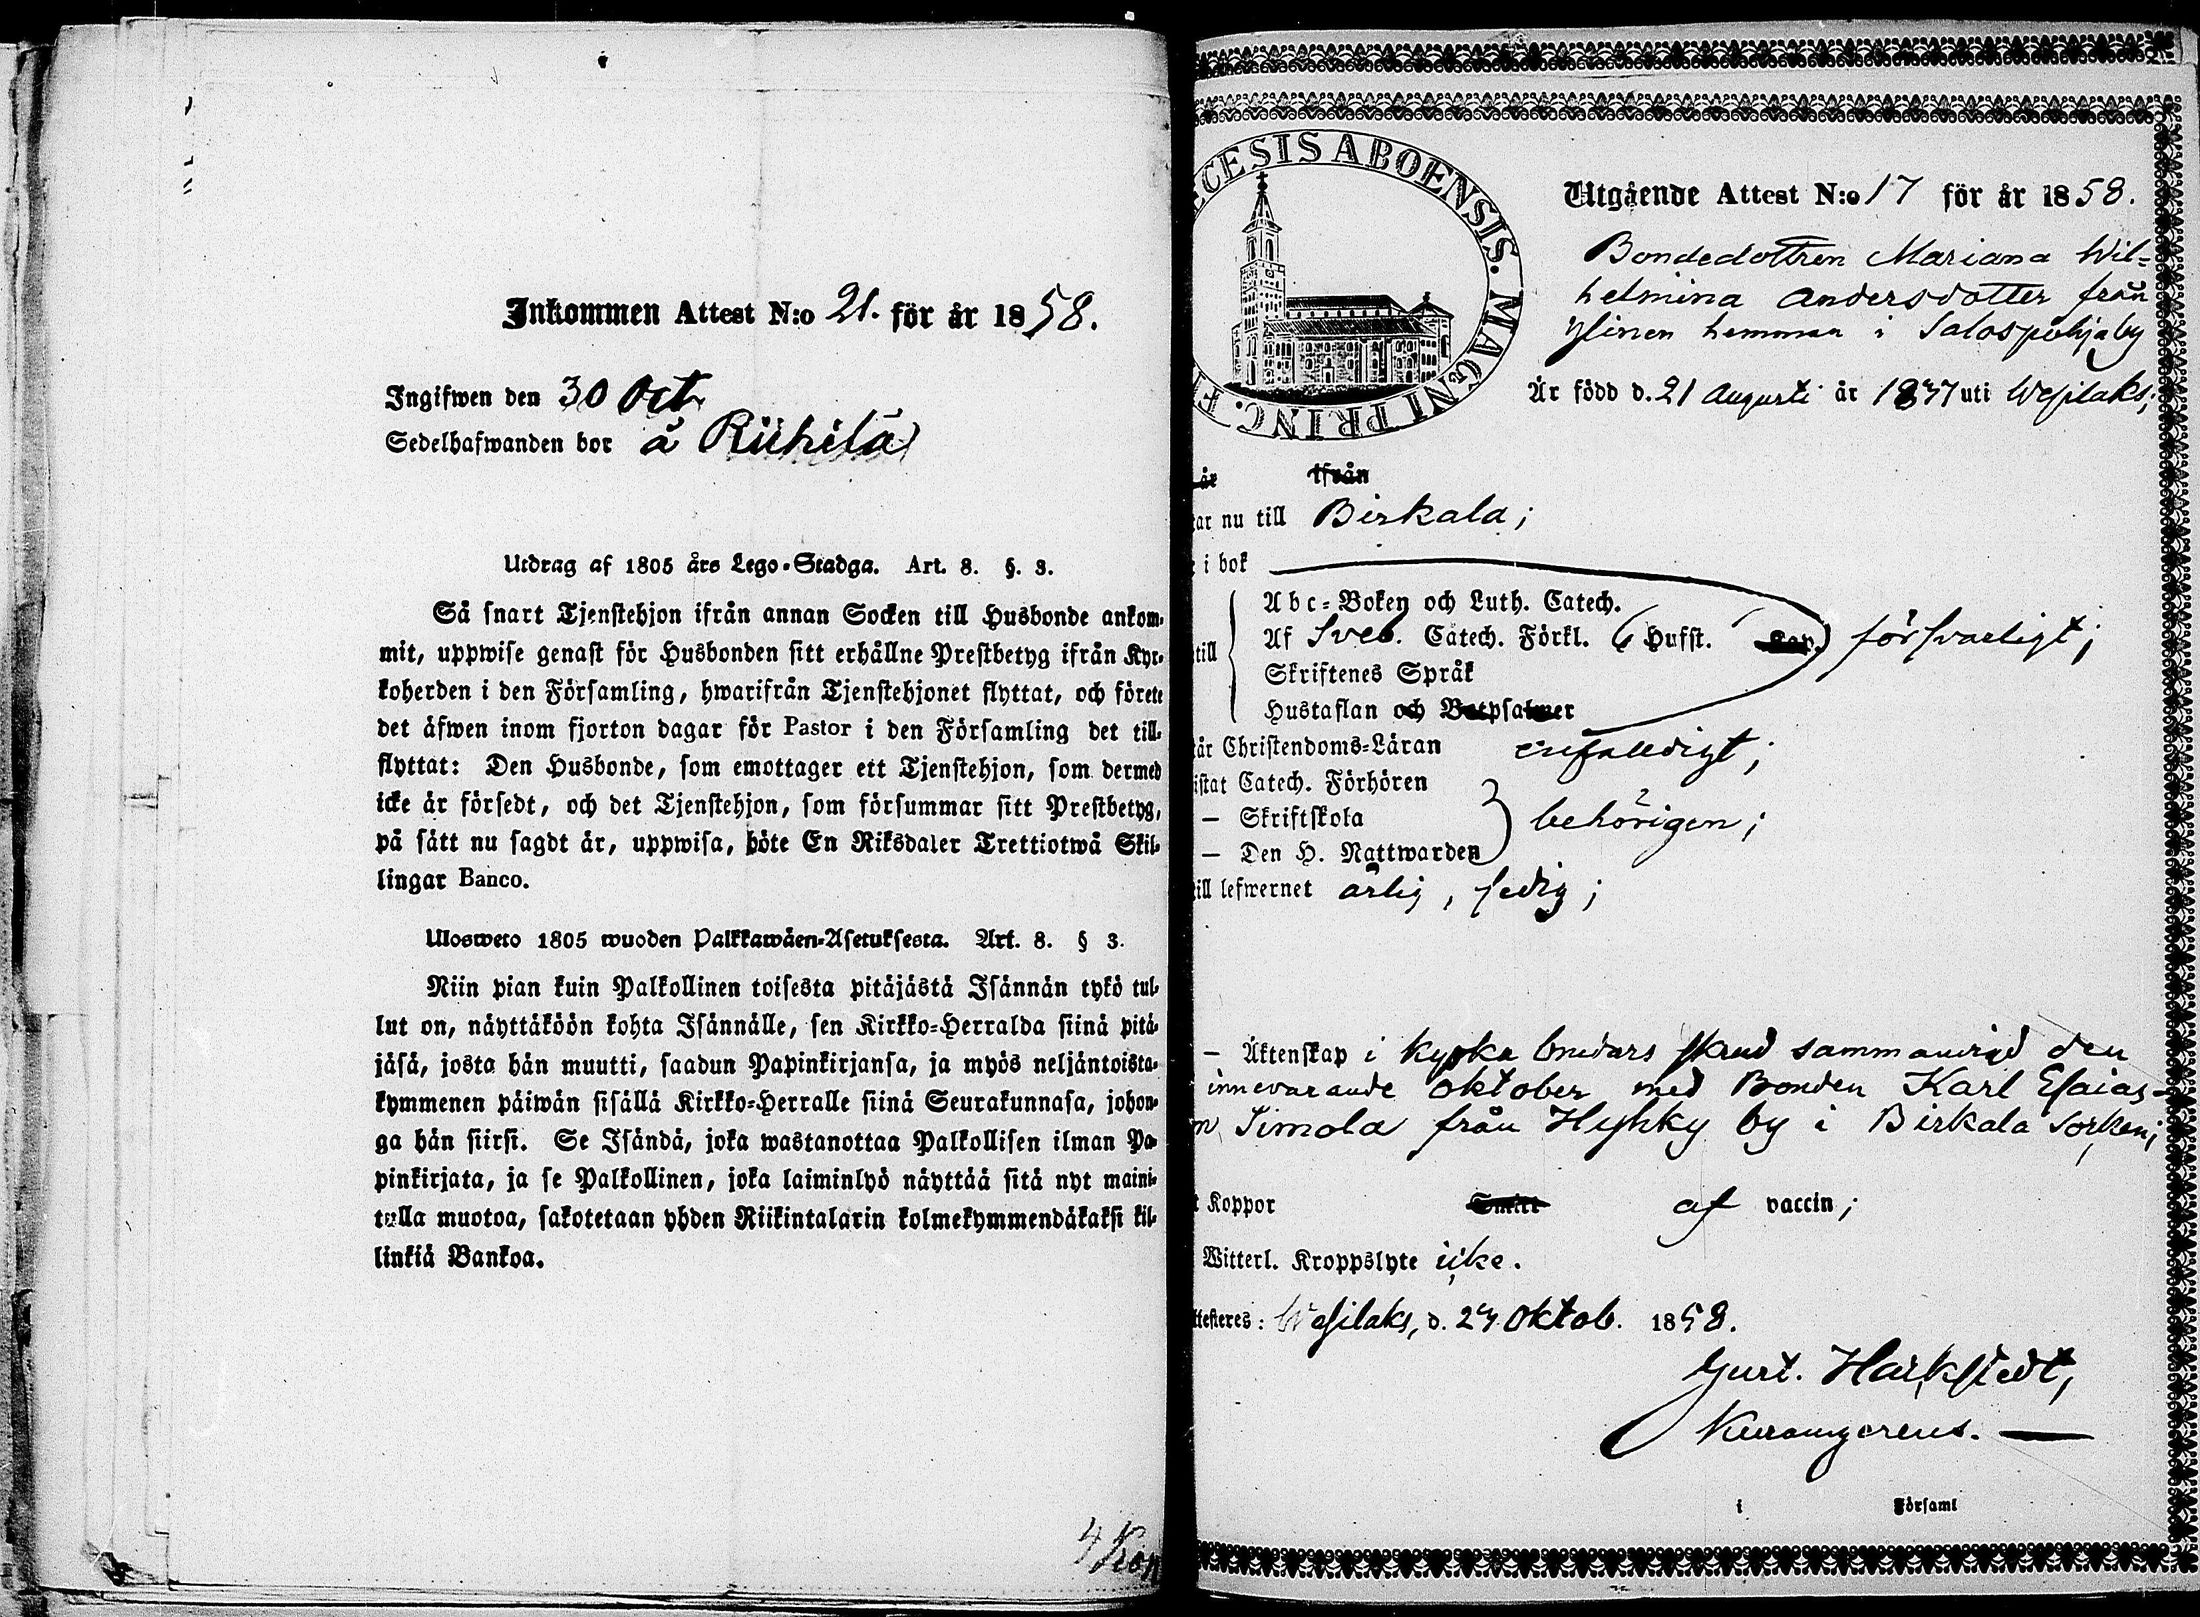 Inkommen Attest N:o 21. för år 1858.
Ingifwen den 30 Oct
Sedelhafwanden bor å Riihilä
Utdrag af 1805 års Lego-Stadga. Art. 8. §. 3.
Så snart Tjenstehjon ifrån annan Socken till Husbonde ankom-
mit, uppwise genast för Husbonden sitt erhållne Prestbetyg ifrån Kyr-
koherden i den Församling, hwarifrån Tjenstehjonet flyttat, och förete
det äfwen inom fjorton dagar för Pastor i den Församling det till-
flyttat: Den Husbonde, som emottager ett Tjenstehjon, som dermed
icke är försedt, och det Tjenstehjon, som försummar sitt Prestbetyg,
på sätt nu sagdt är, uppwisa, böte En Riksdaler Trettiotwå Skil-
lingar Banco.
Ulosweto 1805 wuoden Palkkawäen-Asetuksesta. Art. 8. § 3.
Niin pian kuin Palkollinen toisesta pitäjästä Isännän tykö tul-
lut on, näyttäköön kohta Isännälle, sen Kirkko-Herralda siinä pitä-
jäsä, josta hän muutti, saadun Papinkirjansa, ja myös neljäntoista-
kymmenen päiwän sisällä Kirkko-Herralle siinä Seurakunnasa, johon-
ga hän siirsi. Se Isändä, joka wastanottaa Palkollisen ilman Pa-
pinkirjata, ja se Palkollinen, joka laiminlyö näyttää sitä nyt maini-
tulla muotoa, sakotetaan yhden Riikintalarin kolmekymmendäkaksi kil-
linkiä Bankoa.
4 Kop
ECESIS ABOENSIS. MAGNI PRINC. F
Utgående Attest N:o 17 för år 1858.
Bondedottren Mariana Wil-
helmina Andersdotter från
Ylinen hemman i Salospohja by
Är född d. 21 Augusti år 1837 uti Wesilaks;
år ifrån
tar nu till Birkala;
i bok
Abc-Boken och Luth. Catech.
till Af Sveb. Catech. Förkl. Husst. Kap. försvarligt;
Skriftenes Språk
Hustaflan och Botpsalmer
tår Christendoms-Läran enfaldigt;
istat Catech. Förhören
— Skriftskola behörigen;
— Den H. Nattwarden
till lefwernet ärlig, ledig;
— Äktenskap i kyska
innevarande Oktober med Bonden Karl Esaias-
n Simola från Hyhky by i Birkala Socken;
t Koppor Smitt af vaccin;
Witterl. Kroppslyte icke.
ttesteres: Wesilaks, d. 24 Oktob. 1858.
Gust. Hackstedt,
i Församl